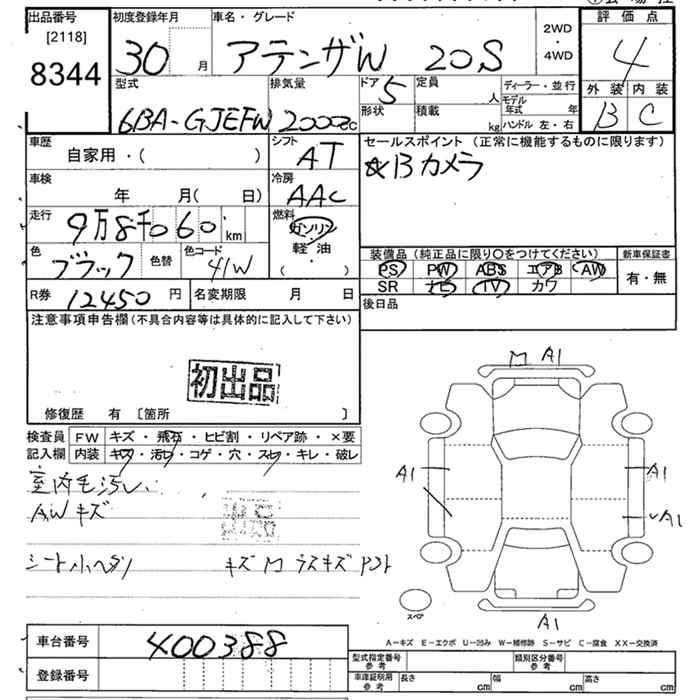 出品番号 初度登録年月 車名・グレード 2WD・4WD 評価点
[2118]
8344 30 月 アテンザW 20S 4
型式 排気量 ドア 5 定員 人 ディーラー・並行 外装 内装
6BA-GJEFW 2000cc 形状 積載 kg モデル年式 年 B C
ハンドル 左・右
車歴 シフト セールスポイント (正常に機能するものに限ります)
自家用・( ) AT Bカメラ
車検 冷房
年 月( 日) AAC
走行 燃料
9万8千060 km ガソリン
軽・油
( )
色 色替 色コード 装備品 (純正品に限り〇をつけてください) 新車保証書
ブラック 41W PS PW ABS エアB AW 有・無
R券 12450 円 名変期限 月 日 SR ナビ TV カワ
注意事項申告欄(不具合内容等は具体的に記入して下さい) 後日品
初出品
修復歴 有 [箇所 ]
M A1
検査員 FW キズ・飛石・ヒビ割・リペア跡・×要
記入欄 内装 キズ・汚レ・コゲ・穴・スレ・キレ・破レ
室内毛汚レ
AWキズ
A1 A1
A1
シート小ヘタリ キズ M
スペア
A1
A-キズ E-エクボ U-凹み W-補修跡 S-サビ C-腐食 XX-交換済
車台番号 400388
型式指定番号 参考 類別区分番号 参考
登録番号 車庫証明用 参考 長さ cm 幅 cm 高さ cm